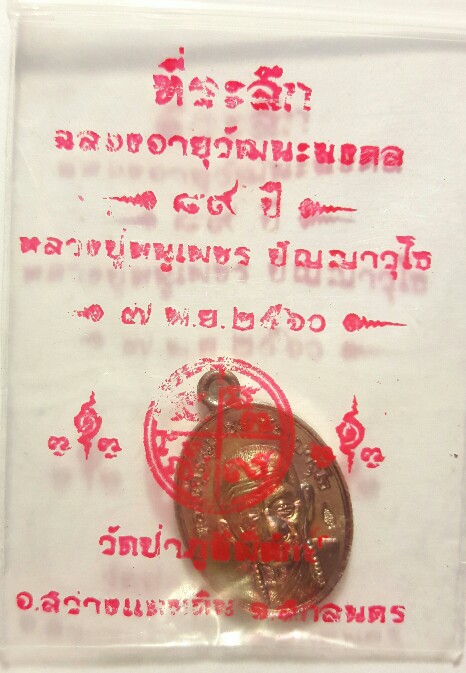 ที่ระลึก
ฉลองอายุวัฒนะมงคล
๘๙ ปี
หลวงปู่หนูเพชร ปัญญาวุโธ
๗ พ.ย. ๒๕๖๐
วัดป่าภู
อ.สว่างแดนดิน จ.สกลนคร